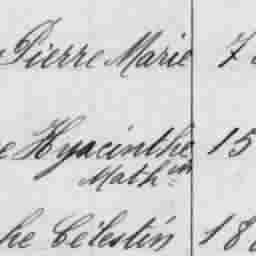 Pierre Marie 7
e Hyacinthe 15
Mathin
he Célestin 18